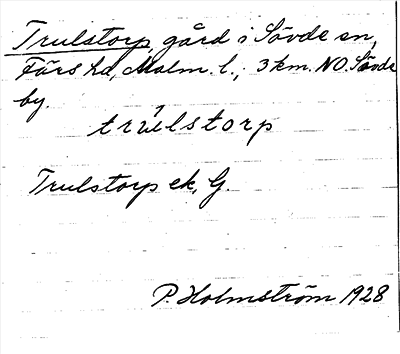 Trulstorp, gård i Sövde sn,
Färs hd, Malm. l., 3 km. NO. Sövde
by.
trúlstorp
Trulstorp ek, G.
P. Holmström 1928